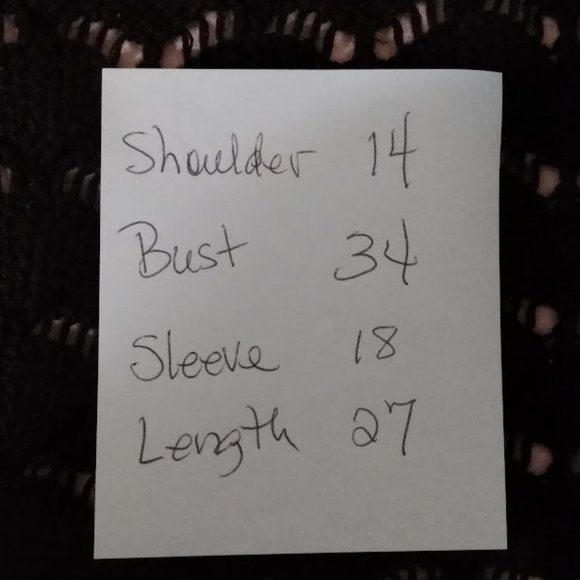 Shoulder 14
Bust 34
Sleeve 18
Length 27